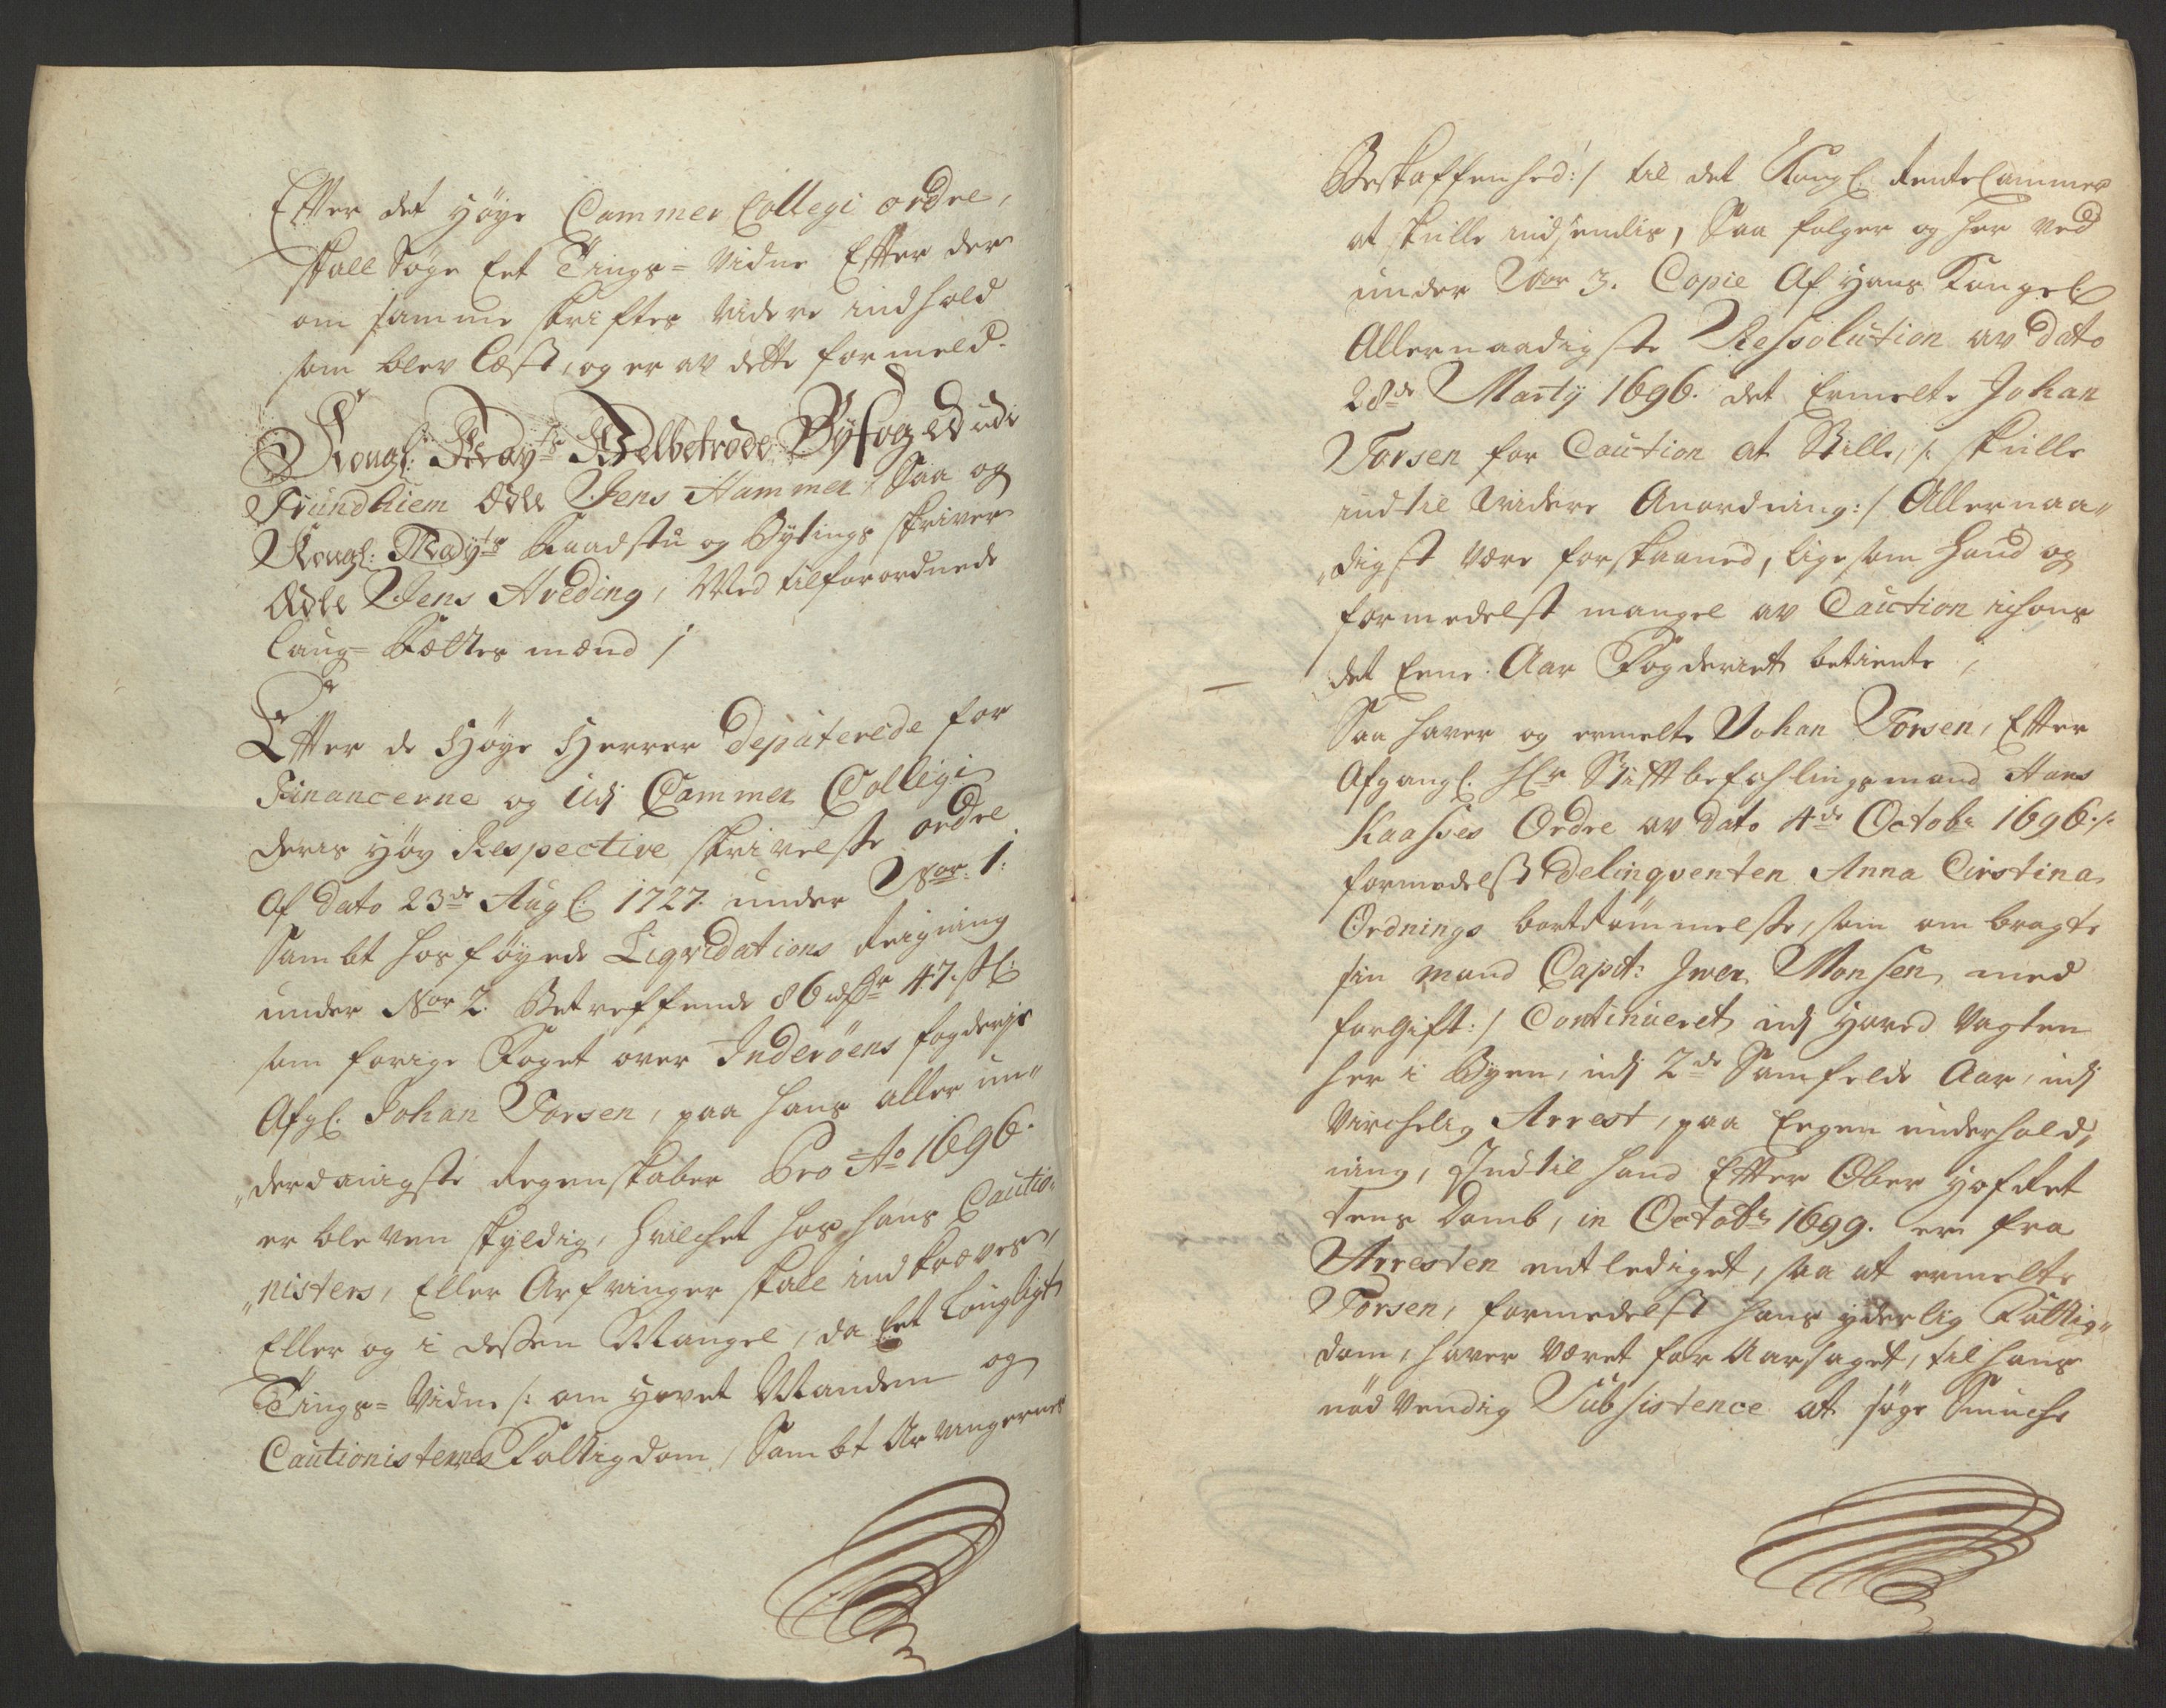 Efter det høye Cammer Collegi ordre,
skall søge Eet Tings=Vidne Efter der
om samme skriftes Videre indhold
som blev Læst, og er av dette formeld.
Kongl: Mayts Velbetrode Byfoged udi
Trundhiem Ædle Jens Hammer, Saa og
Kongl: Mayts Raadstu og Bytings skriver
Ædle Jens Hveding, Med tilforordnede
Laug=Rættes mænd /
Efter de Høye Herrer Deputerede for
Financerne og udj Cammer Collegi
deris høy Respective skrivelsse ordre
Af dato 23de Aug: 1727. under Nor: 1:
Sambt hosføyede Liqvidations Reigning
under Nor 2. Betreffende 86 rdr 47. sk:
som forige Foget over Inderöens fogderje
Afgl: Johan Torsen, paa hans aller un„
„derdanigste Regenskaber Pro Ao 1696.
er bleven skyldig, hvilchet hos hans Cautio„
„nisters, Eller Arfvinger skall indkræves,
Eller og i dessen Mangel, da Eet Lougligt
Tings=Vidne /: om Hovet Manden og
Cautionisternes Fattigdom, Sambt Arvingernes
Beskaffenhed :/ til det Kongl: RenteCammer
at skulle indsendis, Saa følger og her ved
under Nor 3. Copie Af Hans Kongel:
Allernaadigste Ressolution av Dato
28de Marty 1696. det Ermelte Johan
Torsen for Caution at Stille, /: skulle
indtil Videre Anordning :/ Allernaa„
„digst være forskaaned, ligesom Hand og
formedelst mangel av Caution ichons
det Eene Aar Fogderiet betiente,
Saa haver og ermelte Johan Torsen, Efter
Afgangl: Hr Stiftbefahlingsmand Hans
Kaasses Ordre av Dato 4de Octobr 1696. /:
formedelst Delinqventen Anna Cirstina
Ordnings bortrömmelsse, som om bragte
sin Mand Capit: Iwer Monsen, med
forgift :/ Continueret udj Hoved Vagten
her i Byen, udj 2de Samfelde Aar, udj
Virchelig Arrest, paa Eegen underhold„
ning, Indtil hand Efter Ober Hof Ret
tens Domb, in Octobr 1699. er fra
Arresten entlediget, saa at ermelte
Torsen, formedelst hans yderlig Fattig„
dom, haver været for Aarsaget, til hans
nød Vendig Subsistence at søge Smuche